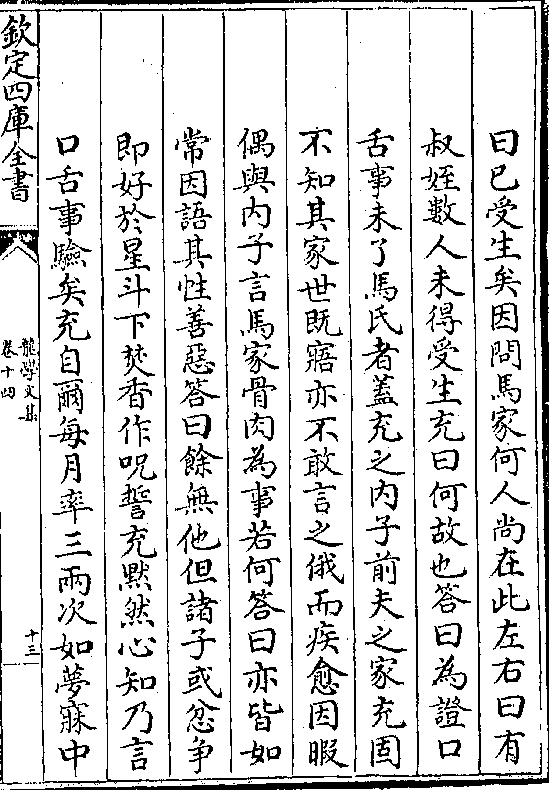 曰已受生矣因問馬家何人尚在此左右曰有
叔姪數人未得受生充曰何故也答曰為證口
舌事未了馬氏者蓋充之内子前夫之家充固
不知其家世既寤亦不敢言之俄而疾愈因暇
偶與内子言馬家骨肉為事若何答曰亦皆如
常因語其性善惡答曰餘無他但諸子或忿争
即好於星斗下焚香作呪誓充黙然心知乃言
口舌事驗矣充自爾每月率三兩次如夢寐中
欽定四庫全書
龍學文集
卷十四
十三